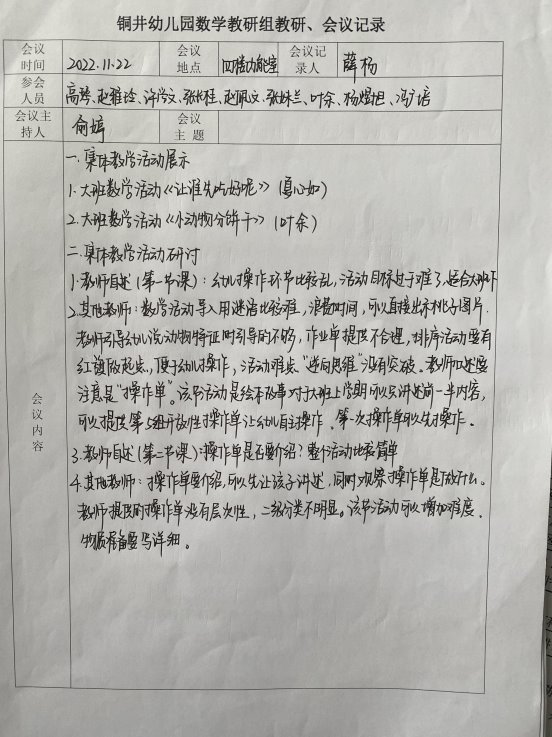 铜井幼儿园数学教研组教研、会议记录
会议时间 2022.11.22 会议地点 四楼功能室 会议记录人 薛杨
参会人员 高琴、赵雅玲、许学文、张长桂、赵凤文、张林兰、叶余、杨煜旦、冯广培
会议主持人 俞婷 会议主题
会议内容
一.集体教学活动展示
1.大班数学活动《让谁先吃好呢》(夏心如)
2.大班数学活动《小动物分饼干》(叶余)
二.集体教学活动研讨
1.教师自述(第一节课):幼儿操作环节比较乱,活动目标过于难了,适合大班下
2.其他教师:数学活动导入用谜语比较难,浪费时间,可以直接出示桃子图片.
教师引导幼儿说动物特征时引导的不够,作业单提供不合理,排序活动要有
红旗做起点,便于幼儿操作,活动难点“逆向思维”没有突破。教师口述要
注意是“操作单”。该节活动是绘本故事,对于大班上学期可以只讲述前一半内容,
可以提供第5组开放性操作单让幼儿自主操作.第一次操作单可以先操作.
3.教师自述(第二节课):操作单是否要介绍?整个活动比较简单
4.其他教师:操作单要介绍,可以先让孩子讲述,同时观察操作单是做什么。
教师提供的操作单没有层次性,二级分类不明显。该节活动可以增加难度.
物质准备要写详细。